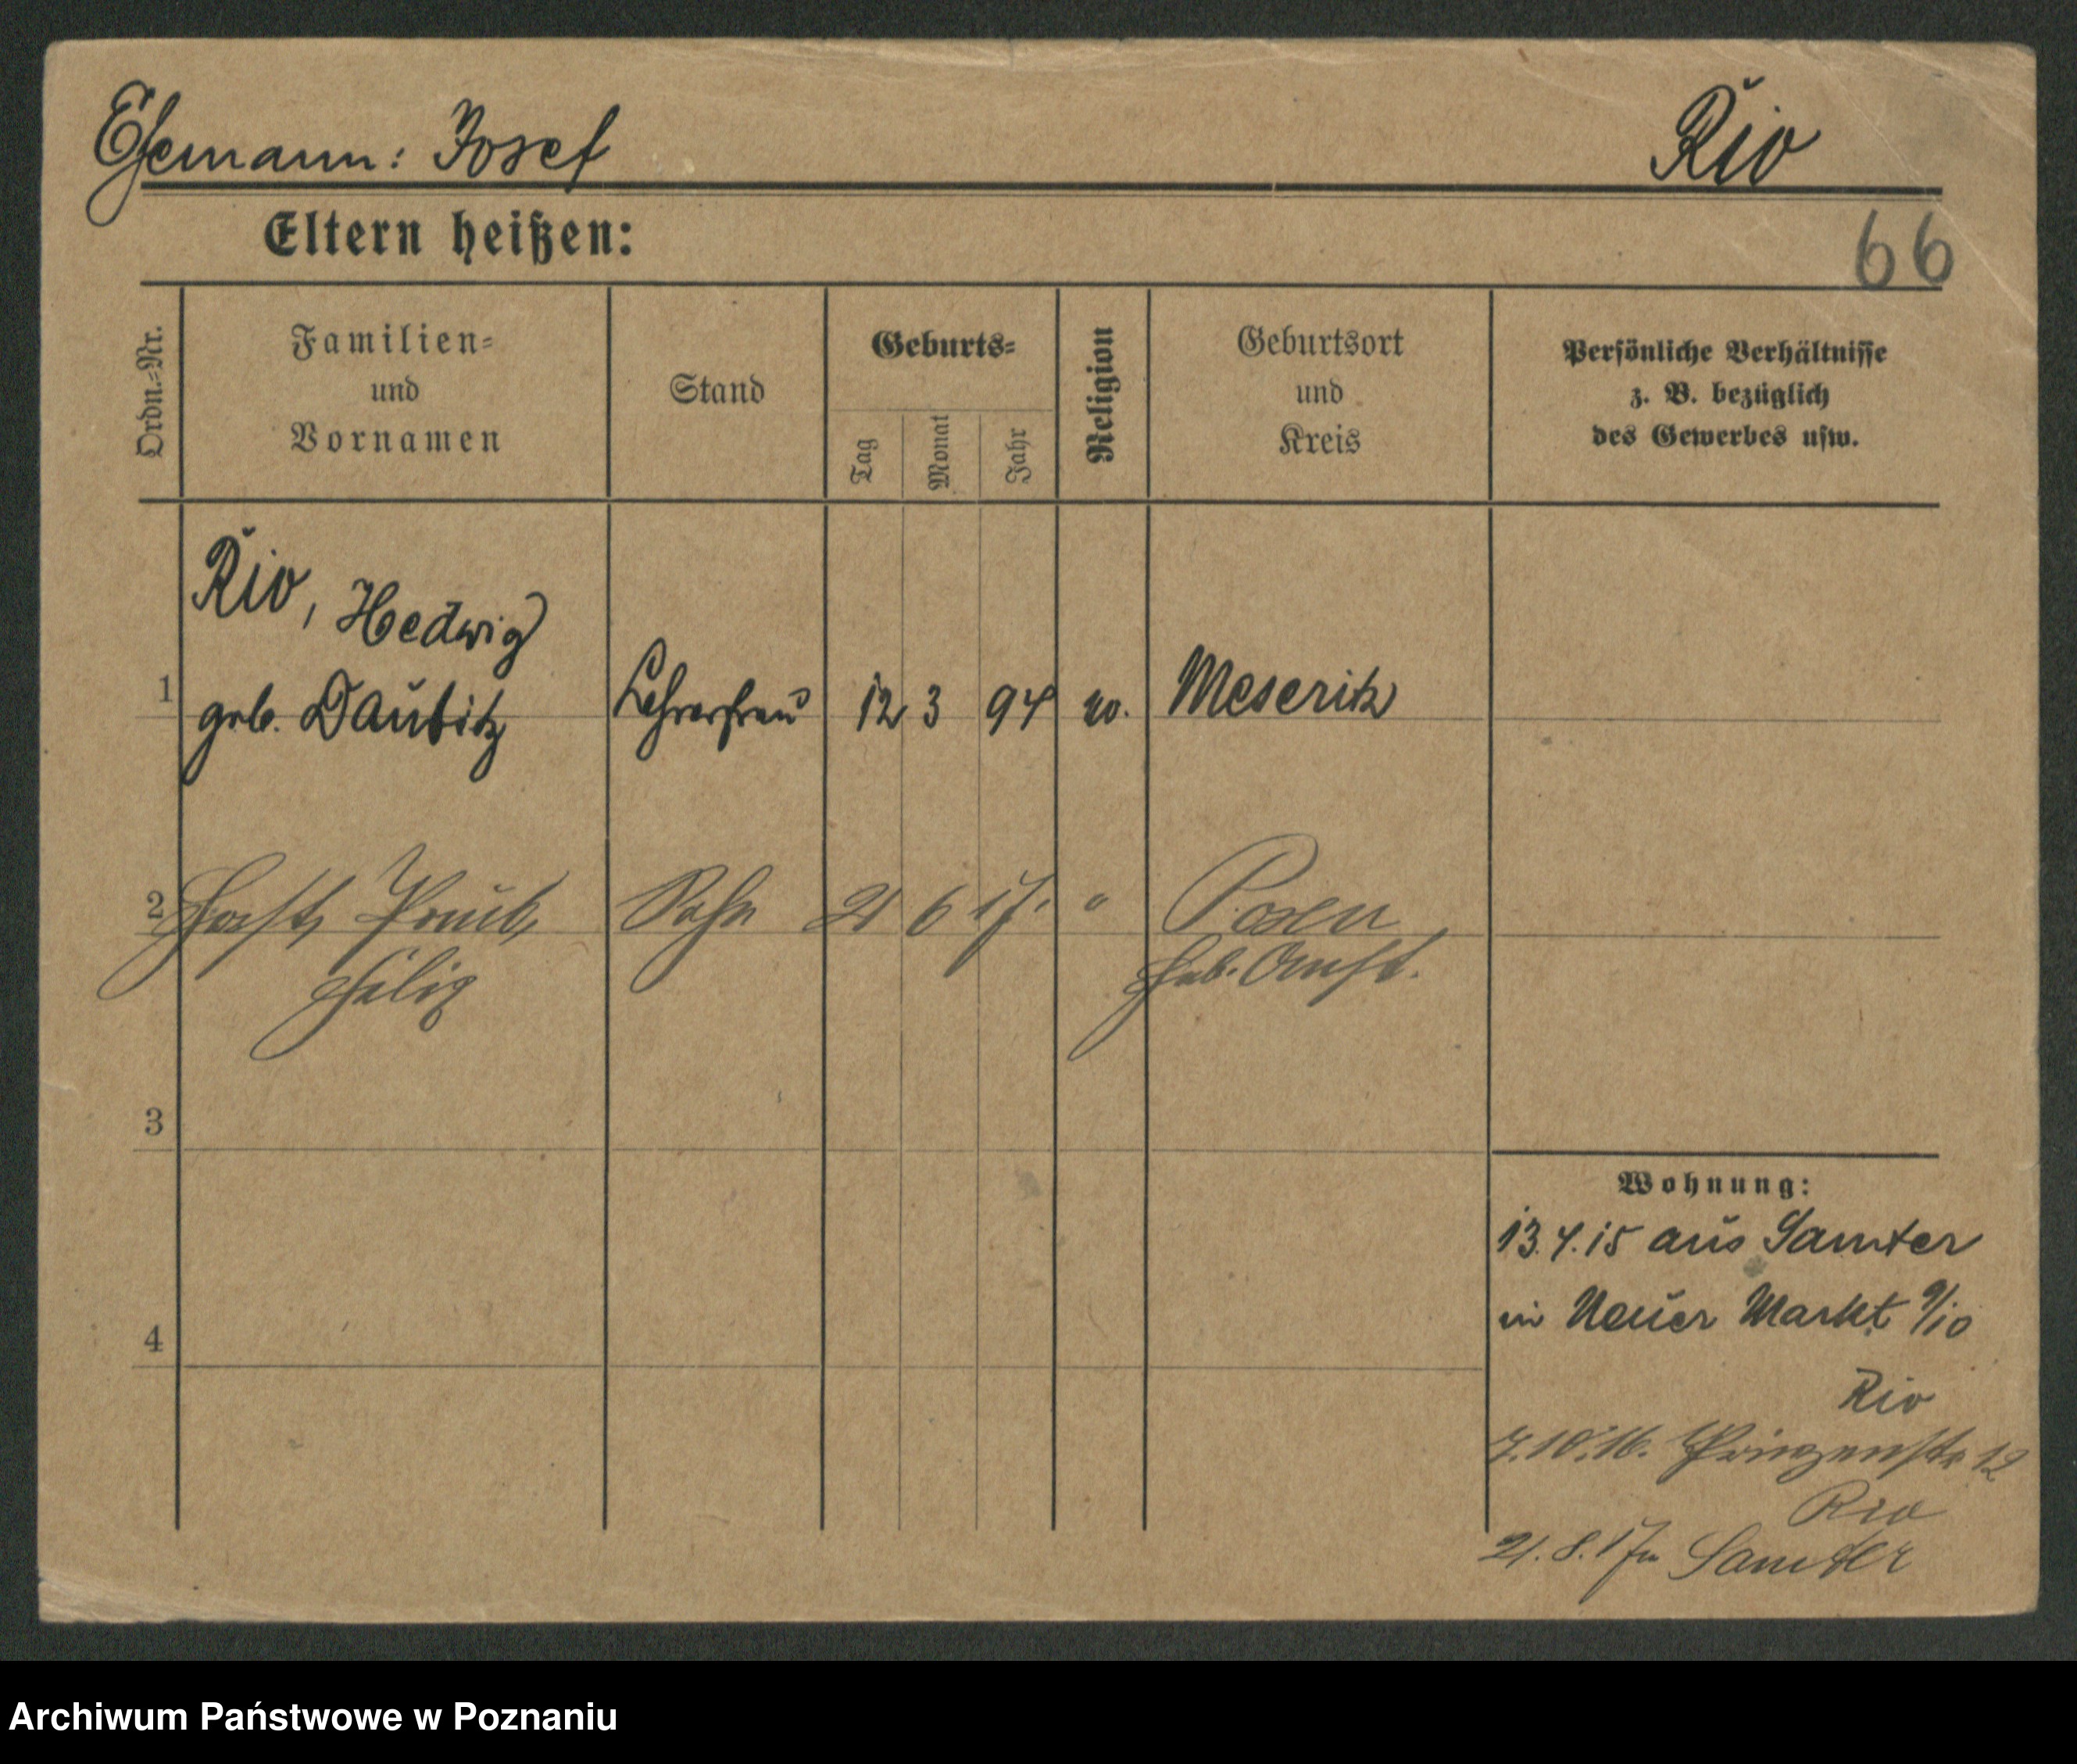 Ehemann: Josef Rio
Eltern heißen:
66
Ordn.=Nr.
Familien=
und
Vornamen
Stand
Geburts=
Tag
Monat
Jahr
Religion
Geburtsort
und
Kreis
Persönliche Verhältnisse
z. B. bezüglich
des Gewerbes usw.
Rio, Hedwig
1 geb. Daubitz Lehrerfrau 12 3 94 Meseritz
2 Horst, Sohn 21 6 17. " Posen
Heb. Anst.
3
4
Wohnung:
13.4.15 aus Samter
in Neuer Markt 9/10
Rio
7.10.16. Prinzenstr 12
Rio
21.8.17 Samter
Archiwum Państwowe w Poznaniu